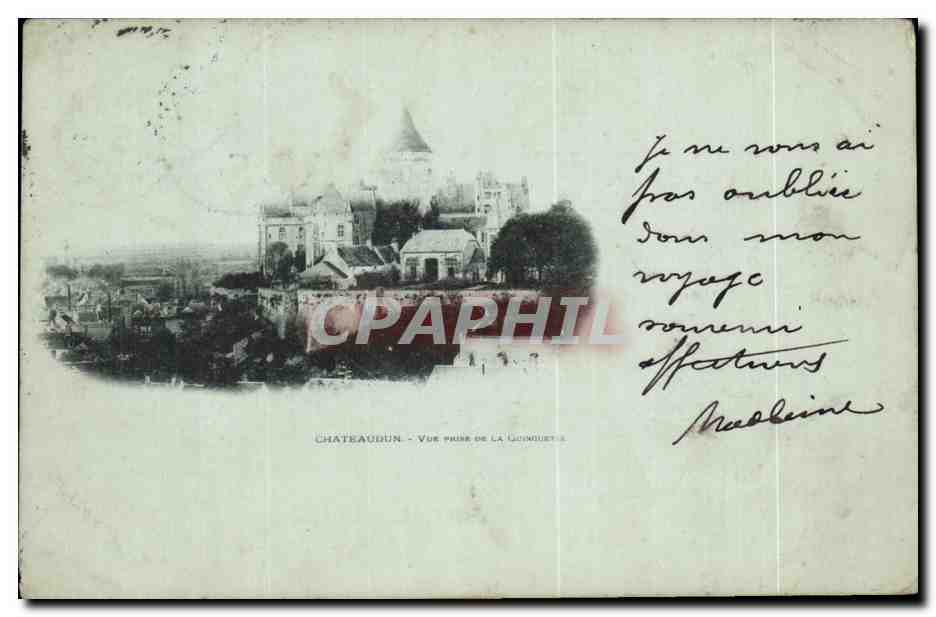 Je ne vous ai
pas oubliée
dans mon
voyage
souvenir
affectueux
Madleine
CPAPHIL
CHATEAUDUN. - VUE PRISE DE LA GUINGUETTE